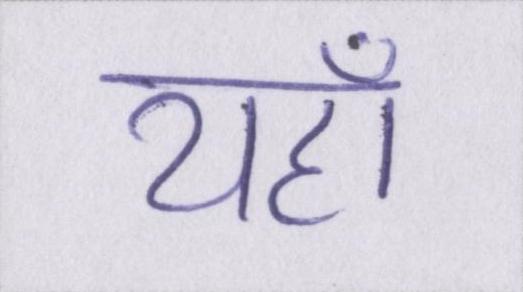 यहाँ